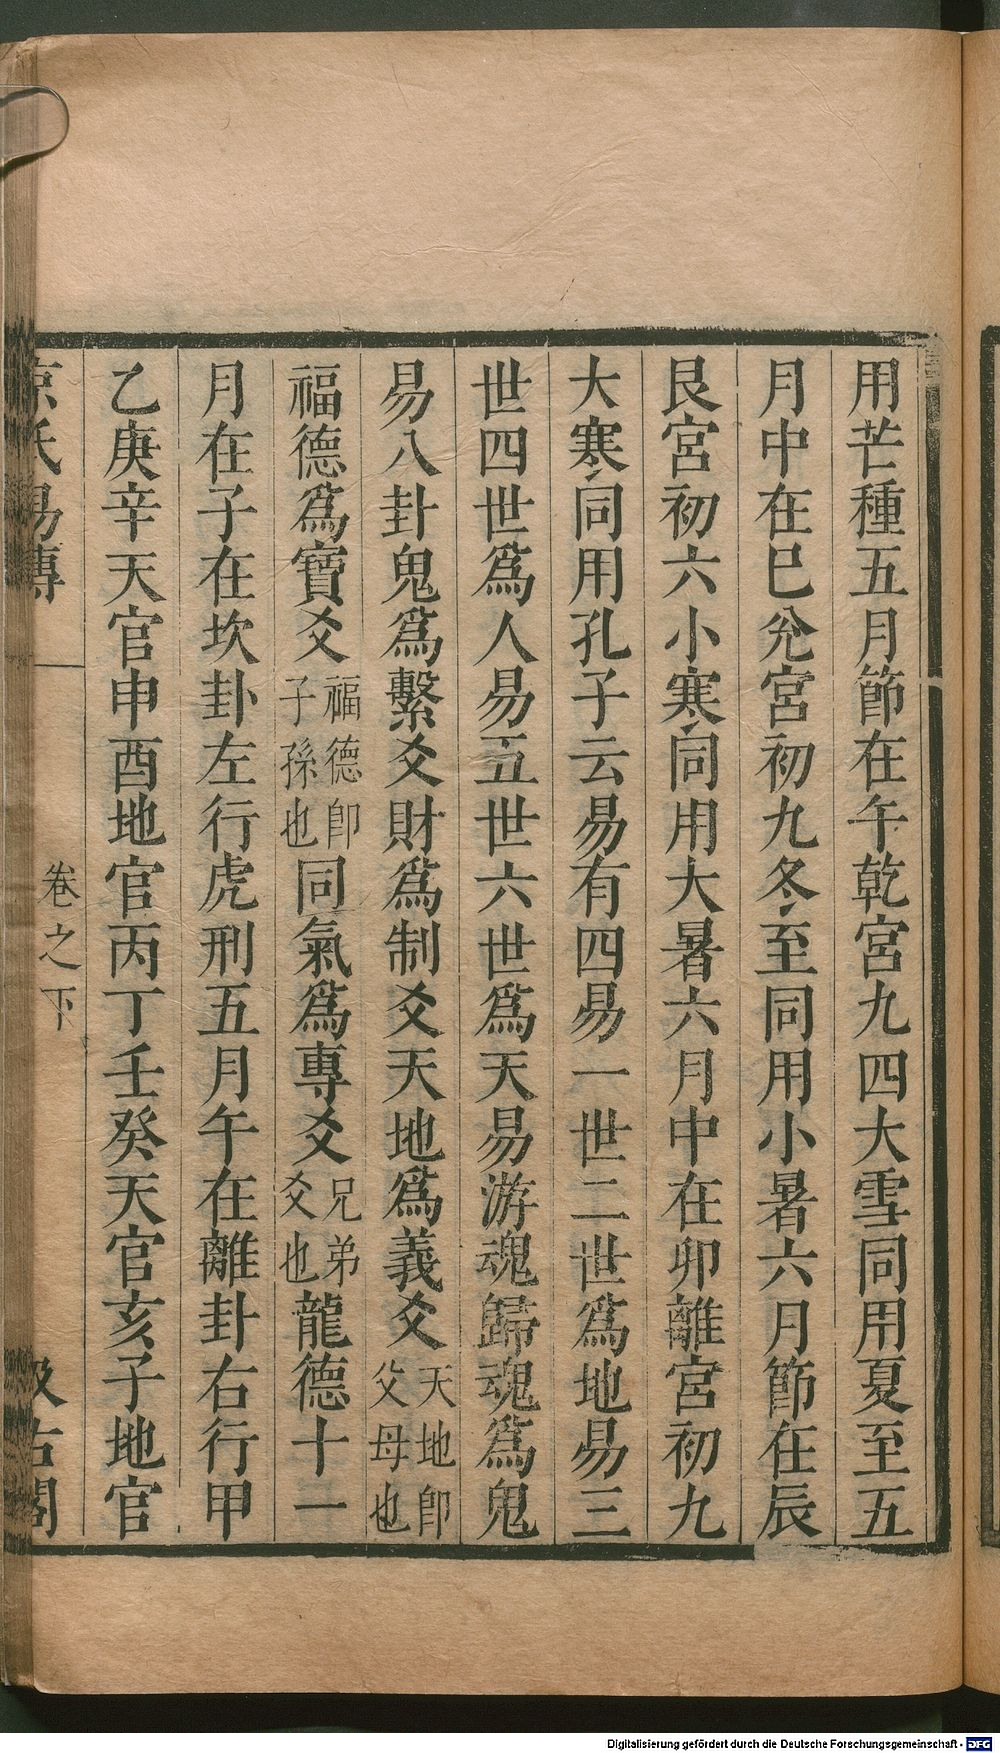 用芒種五月節在午乾宮九四大雪同用夏至五
月中在巳兊宮初九冬至同用小暑六月節在辰
艮宮初六小寒同用大暑六月中在卯離宮初九
大寒同用孔子云易有四易一世二世爲地易三
世四世爲人易五世六世爲天易游魂歸魂爲鬼
易八卦鬼爲繫爻財爲制爻天地爲義爻天地即父母也
福德爲寶爻福德即子孫也同氣爲專爻兄弟爻也龍德十一
月在子在坎卦左行虎刑五月午在離卦右行甲
乙庚辛天官申酉地官丙丁壬癸天官亥子地官
京氏易傳 卷之下 汲古閣
Digitalisierung gefördert durch die Deutsche Forschungsgemeinschaft - DFG